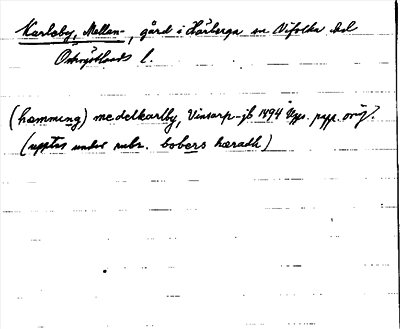 Karlsby, Mellan-, gård i Harberga sn Vifolka hd
Östergötlands l.
(hamming) medelkarlby, Vinsarp-jb 1494 Upps. papp. orig.
(upptas under rubr. bobers hæradh)